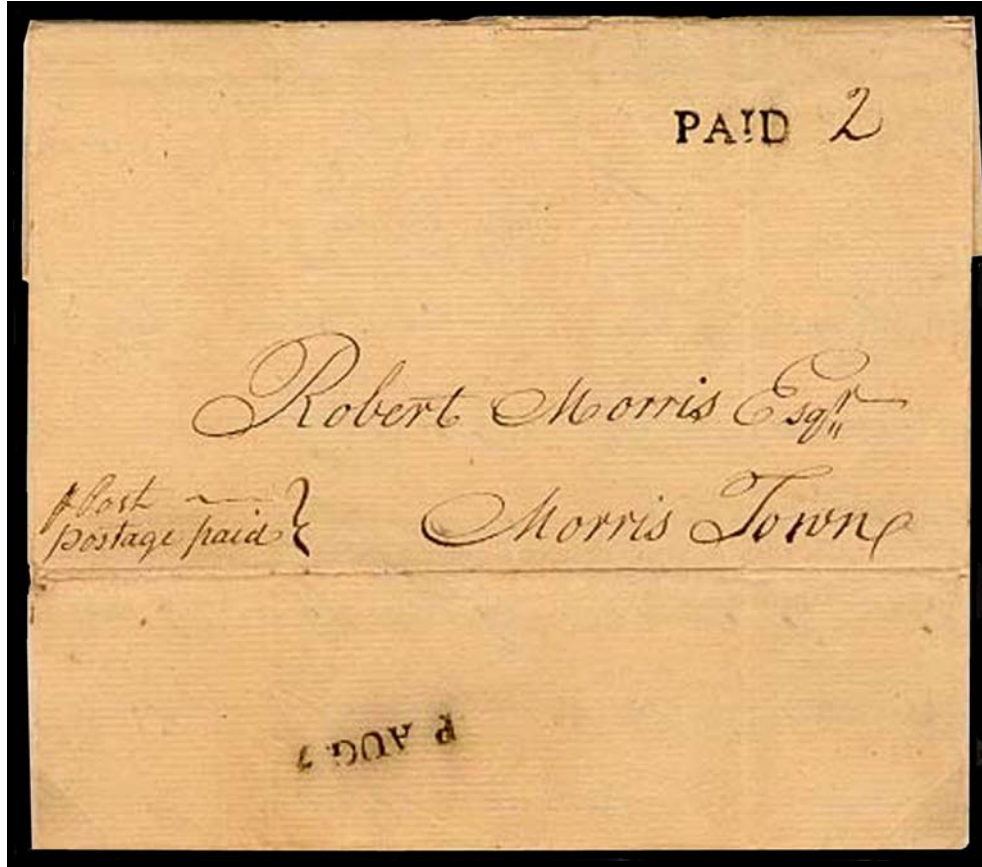 PAID 2
Robert Morris Esqr
Post
postage paid
Morris Town
P AUG 7